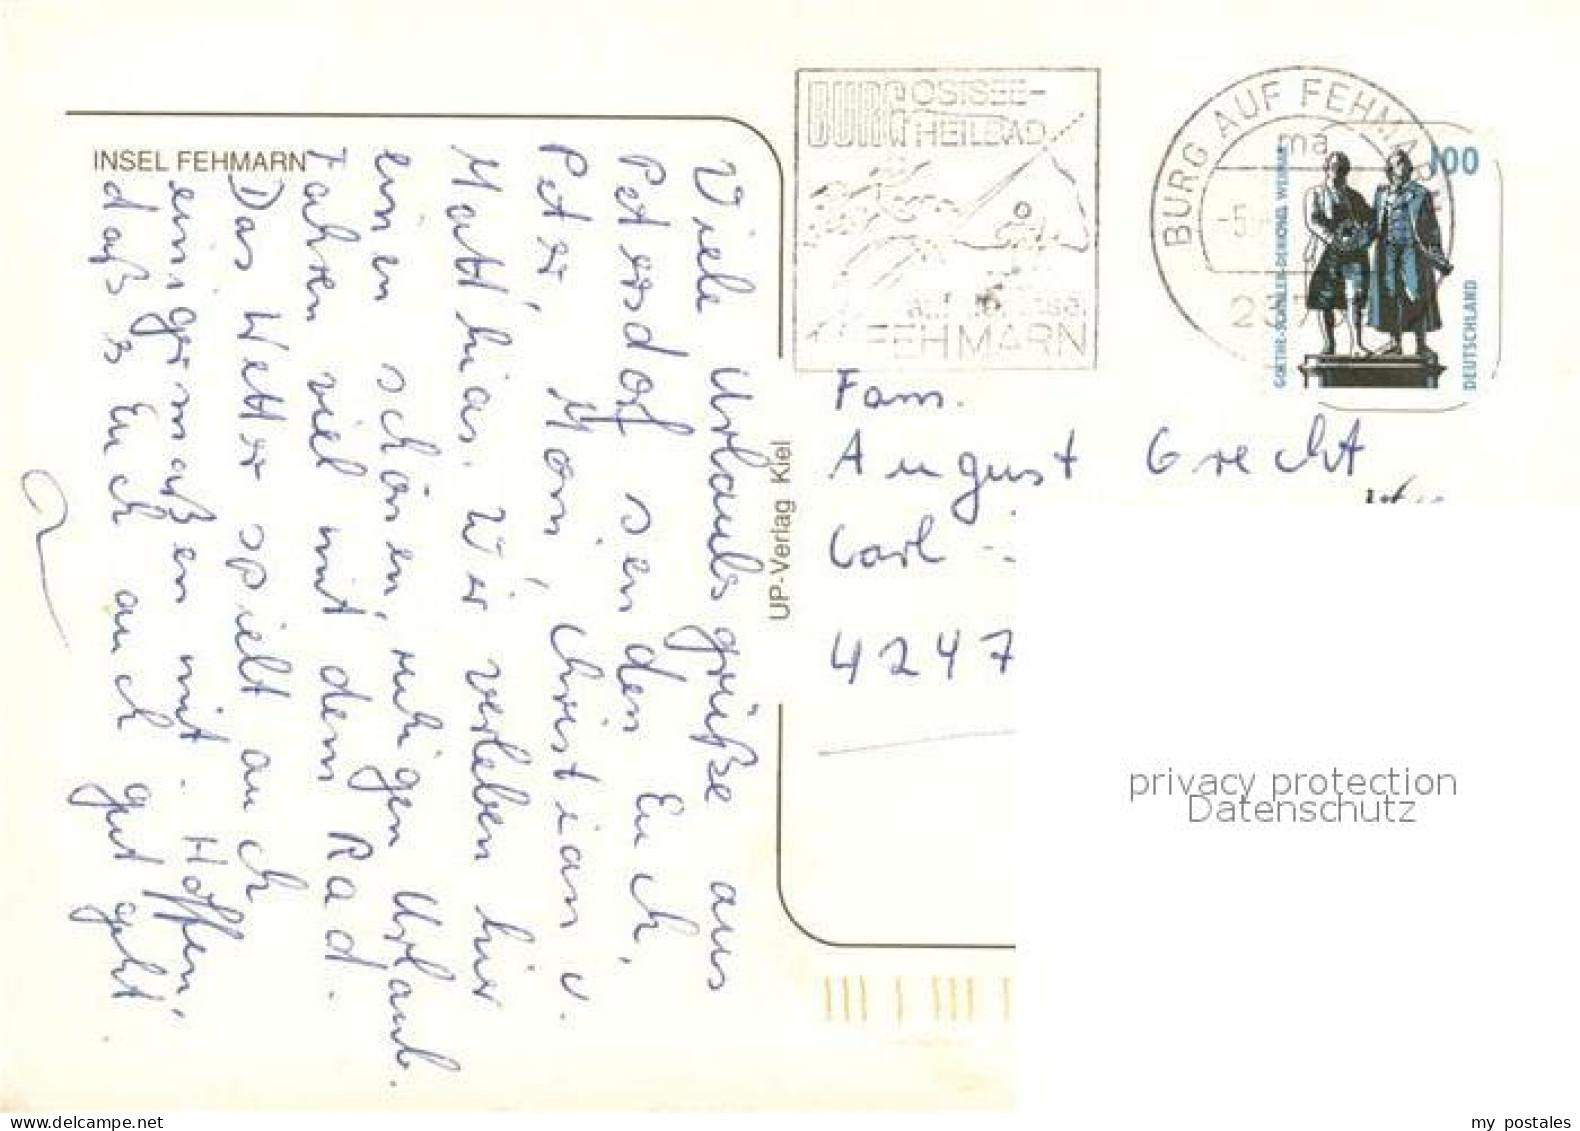 INSEL FEHMARN
Viele Urlaubsgrüße aus
Petersdorf senden Euch,
Peter, Moni, Christian u.
Matthias. Wir verleben hier
einen schönen, ruhigen Urlaub.
Fahren viel mit dem Rad.
Das Wetter spielt auch
einigermaßen mit. Hoffen,
daß es Euch auch gut geht.
UP-Verlag Kiel
BURG OSTSEE-
HEILBAD
auf der Insel
FEHMARN
BURG AUF FEHMARN
ma
-5.
GOETHE-SCHILLER-DENKMAL WEIMAR
100
DEUTSCHLAND
Fam.
August Grecht
Carl -
4247
privacy protection
Datenschutz
www.delcampe.net
my_postales